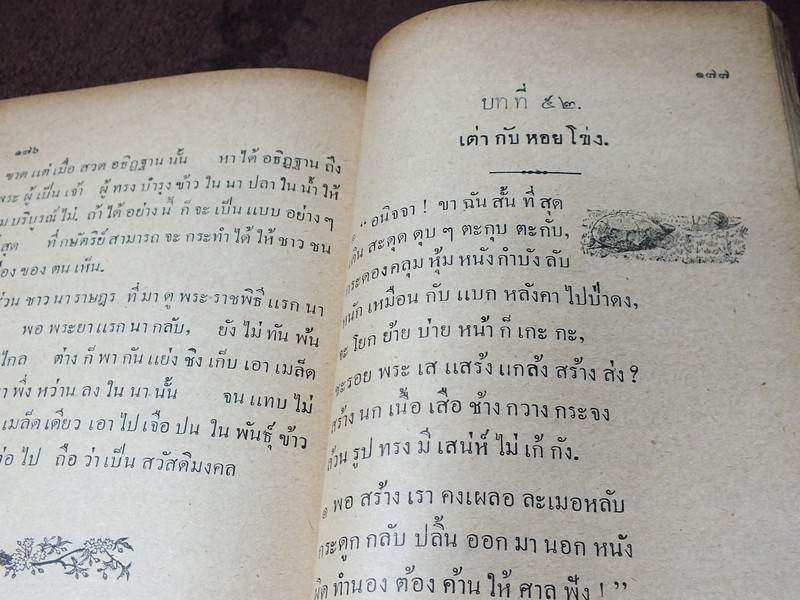 ๑๗๖
ขาด แต่ เมื่อ สวด อธิฏฐาน นั้น หา ได้ อธิฏฐาน ถึง
พระ ผู้ เป็น เจ้า ผู้ ทรง บำรุง ข้าว ใน นา ปลา ใน น้ำ ให้
บริบูรณ์ ไม่. ถ้า ได้ อย่าง นี้ ก็ จะ เป็น แบบ อย่าง ๆ
สุด ที่ กษัตริย์ สามารถ จะ กระทำ ได้ ให้ ชาว ชน
ของ ตน เห็น.
ชาว นา ราษฎร ที่ มา ดู พระ ราชพิธี แรก นา
พอ พระยา แรก นา กลับ, ยัง ไม่ ทัน พ้น
ไกล ต่าง ก็ พา กัน แย่ง ชิง เก็บ เอา เมล็ด
พึ่ง หว่าน ลง ใน นา นั้น จน แทบ ไม่
เมล็ด เดียว เอา ไป เจือ ปน ใน พันธุ์ ข้าว
ต่อ ไป ถือ ว่า เป็น สวัสดิมงคล
๑๗๗
บท ที่ ๕๒.
เต่า กับ หอย โข่ง.
๏ “ อนิจจา ! ขา ฉัน สั้น ที่ สุด
เดิน สะดุด ดุบ ๆ ตะกุบ ตะกับ,
กระดอง คลุม หุ้ม หนัง กำบัง ลับ
หนัก เหมือน กับ แบก หลังคา ไป ป่า ดง,
จะ โยก ย้าย บ่าย หน้า ก็ เกะ กะ,
ชะรอย พระ เส แสร้ง แกล้ง สร้าง ส่ง ?
สร้าง นก เนื้อ เสือ ช้าง กวาง กระจง
ล้วน รูป ทรง มี เสน่ห์ ไม่ เก้ กัง.
๏ พอ สร้าง เรา คง เผลอ ละเมอ หลับ
กระดูก กลับ ปลิ้น ออก มา นอก หนัง
ผิด ทำนอง ต้อง ค้าน ให้ ศาล ฟัง ! ”